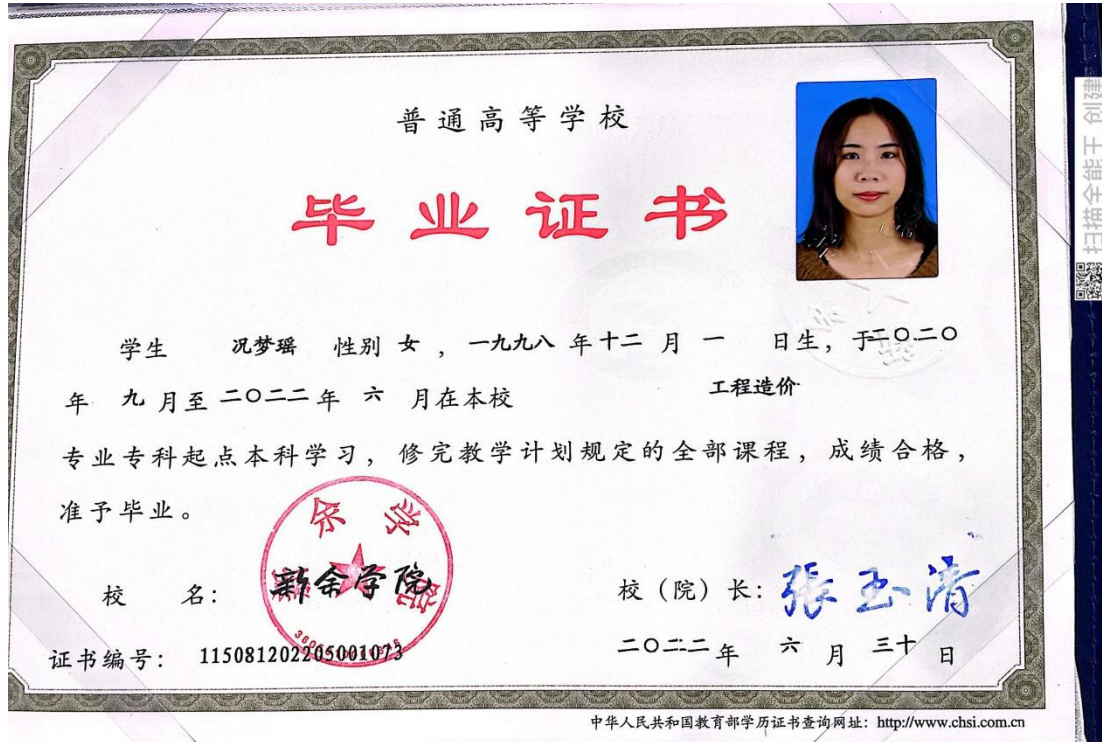 普通高等学校
毕业证书
学生 况梦瑶 性别 女 ，一九九八 年十二 月 一 日生，于二〇二〇
年 九 月至 二〇二二 年 六 月在本校 工程造价
专业专科起点本科学习，修完教学计划规定的全部课程，成绩合格，
准予毕业。
校 名： 新余学院
校（院）长：張玉清
证书编号： 115081202205001073
二〇二二 年 六 月 三十 日
中华人民共和国教育部学历证书查询网址：http://www.chsi.com.cn
扫描全能王 创建